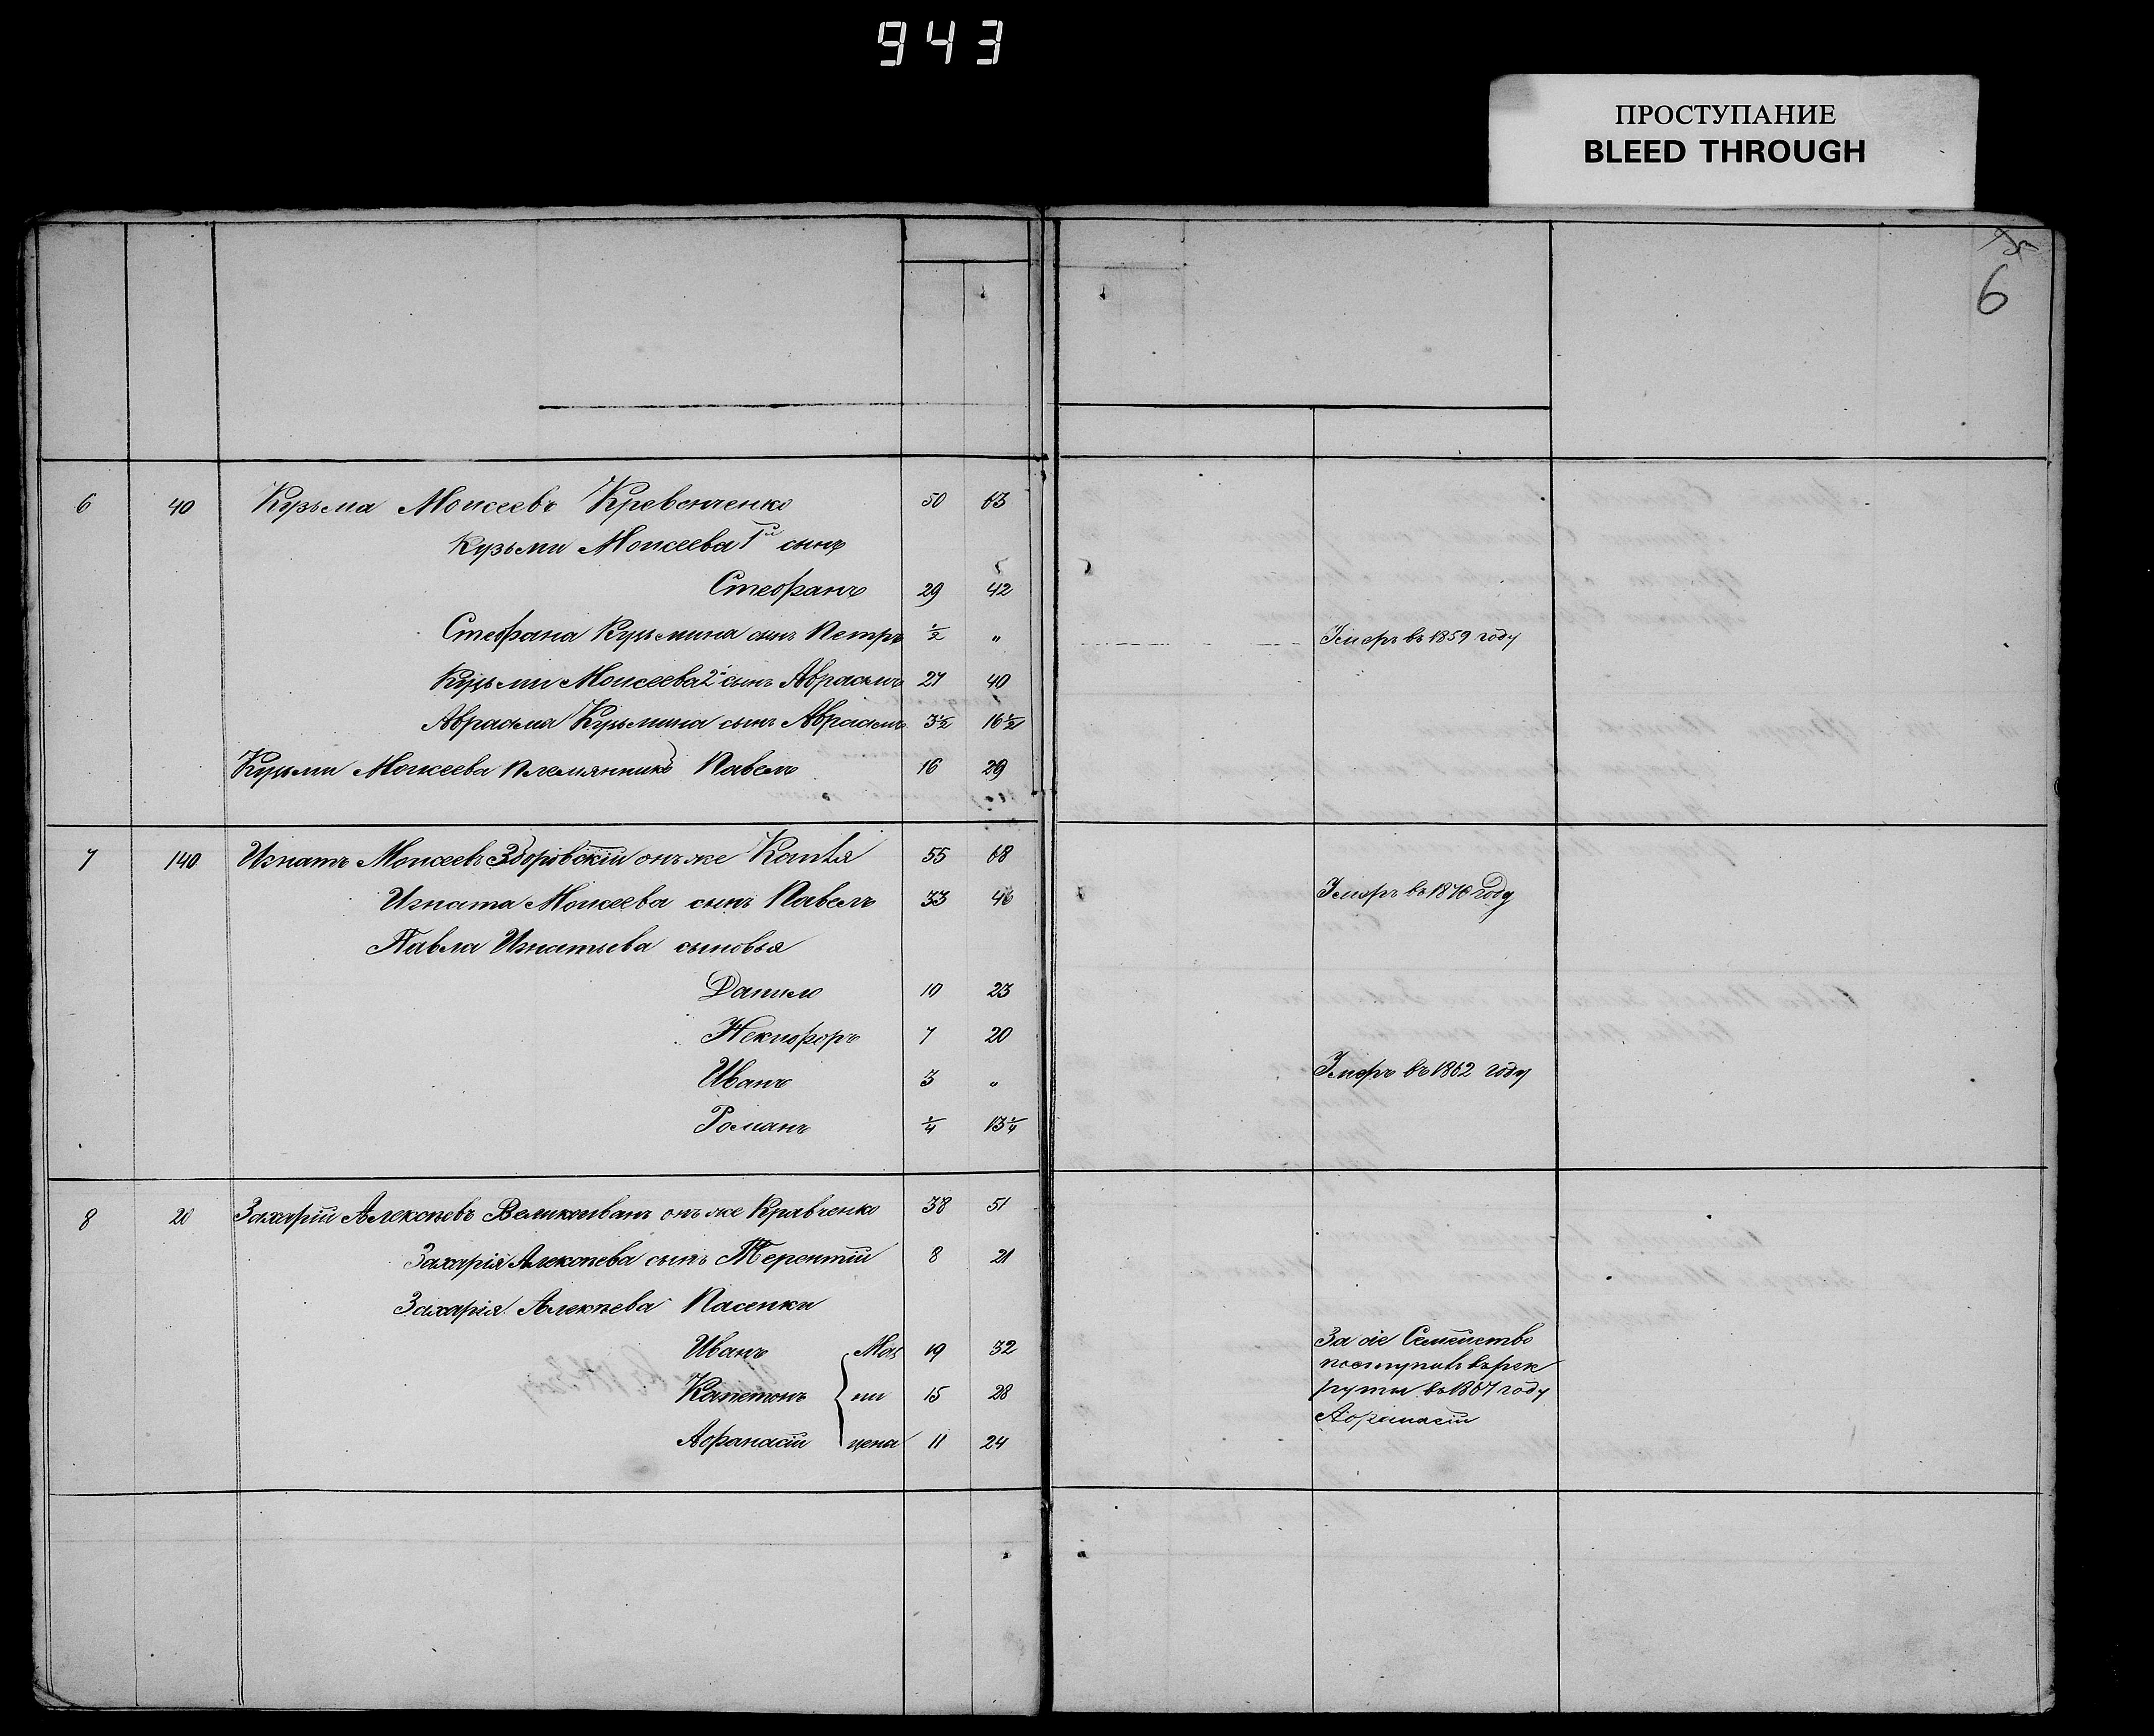 943
ПРОСТУПАНИЕ
BLEED THROUGH
6
6 40 Кузьма Моисеевъ Кревонченко 50 63
Кузьми Моисеева 1й сынъ
Стефанъ 29 42
Стефана Кузьмина сынъ Петръ ½ „ Умеръ въ 1859 году
Кузьми Моисеева 2й сынъ Авраамъ 27 40
Авраама Кузьмина сынъ Авраамъ 3½ 16½
Кузьми Моисеева племянникъ Павелъ 16 29
7 140 Игнатъ Моисеевъ Здоровскій онъ же 55 68
Игната Моисеева сынъ Павелъ 33 46 Умеръ въ 1870 году
Павла Игнатьева сыновья
Данило 10 23
Некифоръ 7 20
Иванъ 3 „ Умеръ въ 1862 году
Романъ ¼ 13¼
8 20 Захарій Алексѣевъ Великоиванъ онъ же Кравченко 38 51
Захарія Алексѣева сынъ Терентій 8 21
Захарія Алексѣева Пасенки
Иванъ 19 32 За сіе Семейство
Капетонъ 15 28 поступилъ въ рек
руты въ 1867 году
Афанасій 11 24 Афанасій